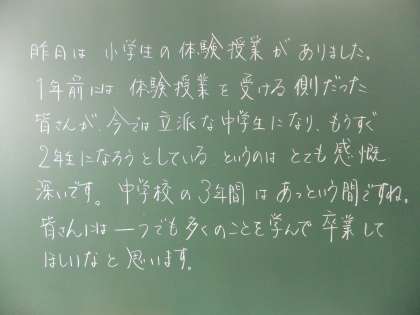 昨日は小学生の体験授業がありました。
1年前には体験授業を受ける側だった
皆さんが、今では立派な中学生になり、もうすぐ
2年生になろうとしているというのはとても感慨
深いです。中学校の3年間はあっという間ですね。
皆さんには一つでも多くのことを学んで卒業して
ほしいなと思います。